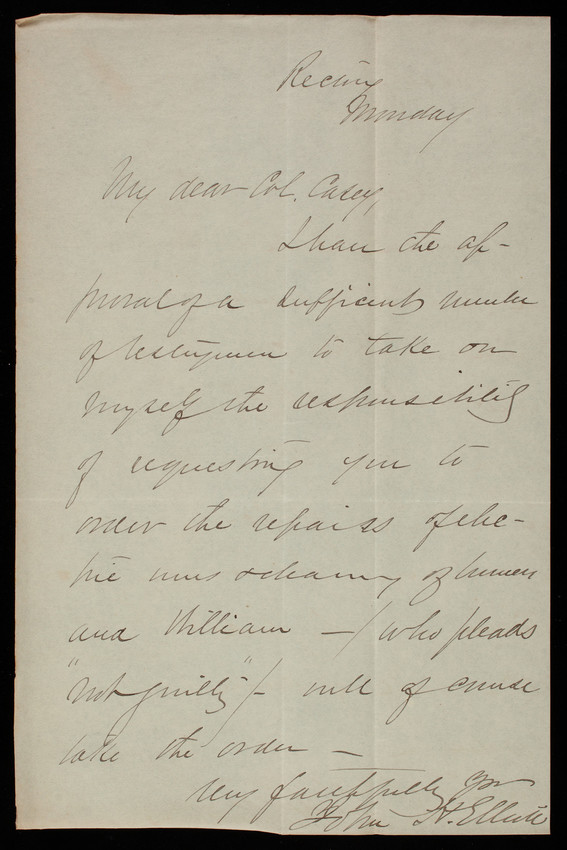 Rectory
Monday
My dear Col. Casey,
I have the ap-
proval of a sufficient number
of vestrymen to take on
myself the responsibility
of requesting you to
order the repairs of elec-
tric wires & cleaning of burners
and William - (who pleads
"not guilty") - will of course
take the order -
Very faithfully yrs
John H. Elliott